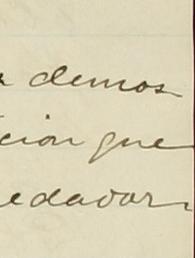 demos
cion que
edavor